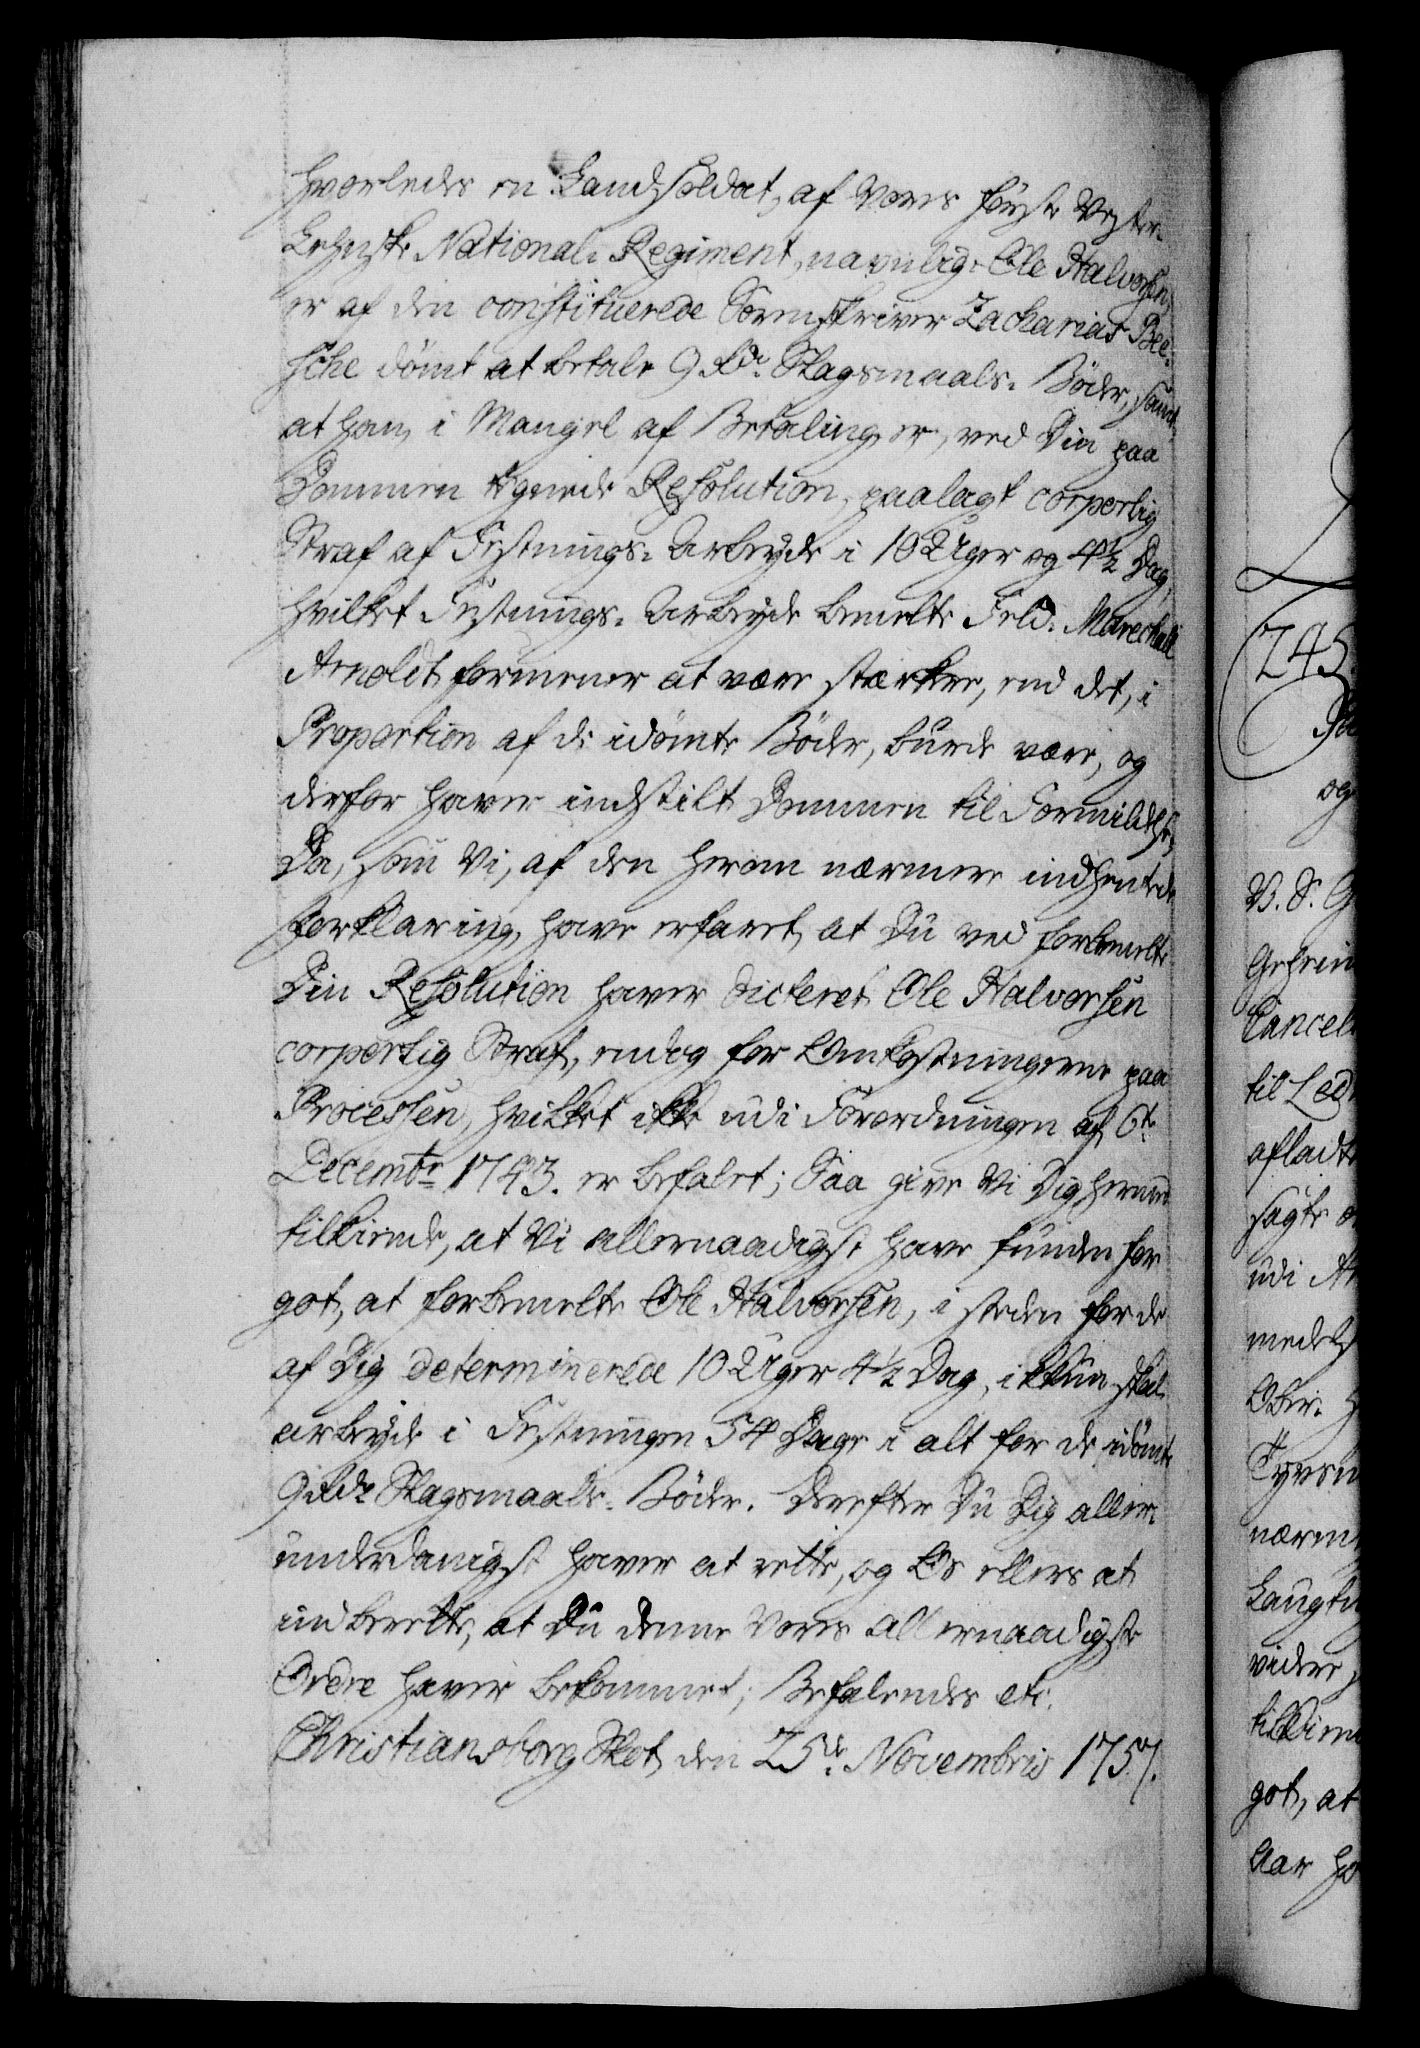 hvorledes en Landsoldat, af Vores første Vester-
Lehnske National-Regiment, navnlig: Ole Halvorsen,
er af den constituerede Sorenskriver Zacharias Bee-
sche dömt at betale 9 Rdr. Slagsmaals-Böder, samt,
at han, i Mangel af Betaling, er, ved Din paa
Dommen tegnede Resolution, paalagt corporlig
Straf af Festnings-Arbeyde i 10 Uger og 4½ Dag,
hvilket Festnings-Arbeyde bemelte Feld-Marechall
Arnoldt formener at være stærkere, end det, i
Proportion af de idömte Böder, burde være, og
derfor haver indstilt Dommen til Formildelse,
Da, som Vi, af den herom nærmere indhentede
Forklaring, have erfaret, at Du ved forbemelte
Din Resolution haver dicteret Ole Halvorsen
corporlig Straf, endog for Omkostningerne paa
Processen, hvilket ikke udi Forordningen af 6te
Decembr 1743. er befalet; Saa give Vi Dig hermed
tilkiende, at Vi allernaadigst have funden for
got, at forbemelte Ole Halvorsen, i steden for de
af Dig determinerede 10 Uger 4½ Dag, ikkun skal
arbeyde i Festningen 54 Dage i alt for de idömte
9 Rdr Slagsmaals-Böder. Derefter Du Dig aller-
underdanigst haver at rette, og Os ellers at
indberette, at Du denne Vores allernaadigste
Ordre haver bekommet; Befalendes etc.
Christiansborg Slot den 25de Novembris 1757.
245.
og
V. S. G
Geheim
Cancel
til Led
afladt
sagte
udi A
medels
Ober-
Tyrsn
nærm
Laugti
videre
tilkien
got, at
Aar ho